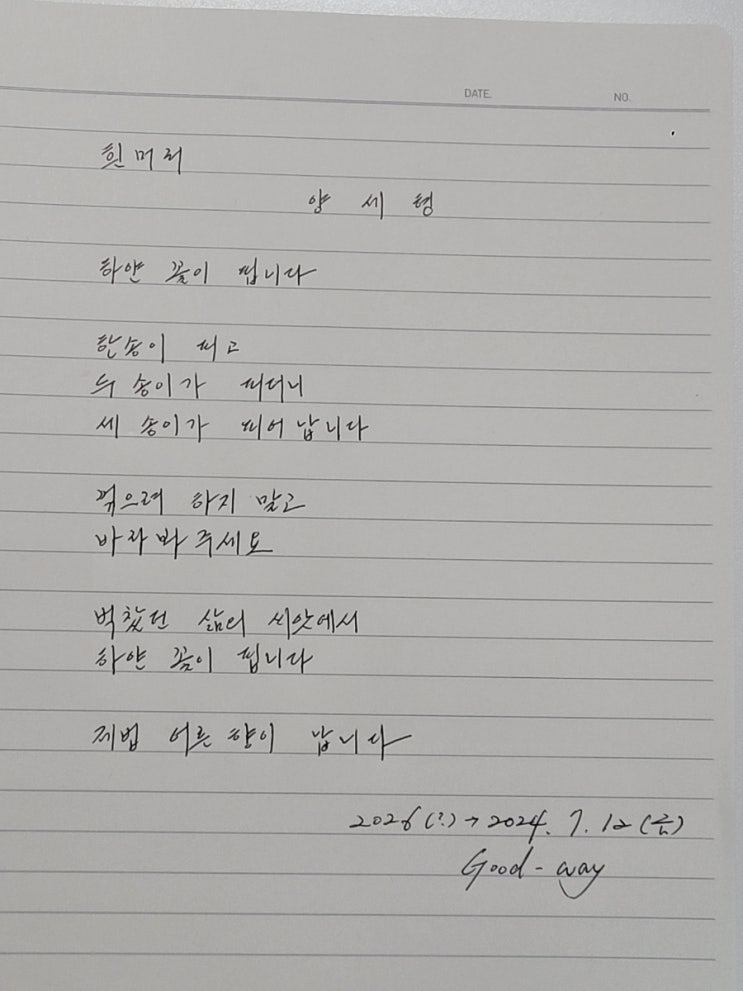 DATE.
NO.
흰머리
양 세 형
하얀 꽃이 핍니다
한송이 피고
두 송이가 피더니
세 송이가 피어 납니다
꺾으려 하지 말고
바라봐 주세요
벅찼던 삶의 씨앗에서
하얀 꽃이 핍니다
제법 어른 향이 납니다
2026(?)→2024. 7. 12(금)
Good-way